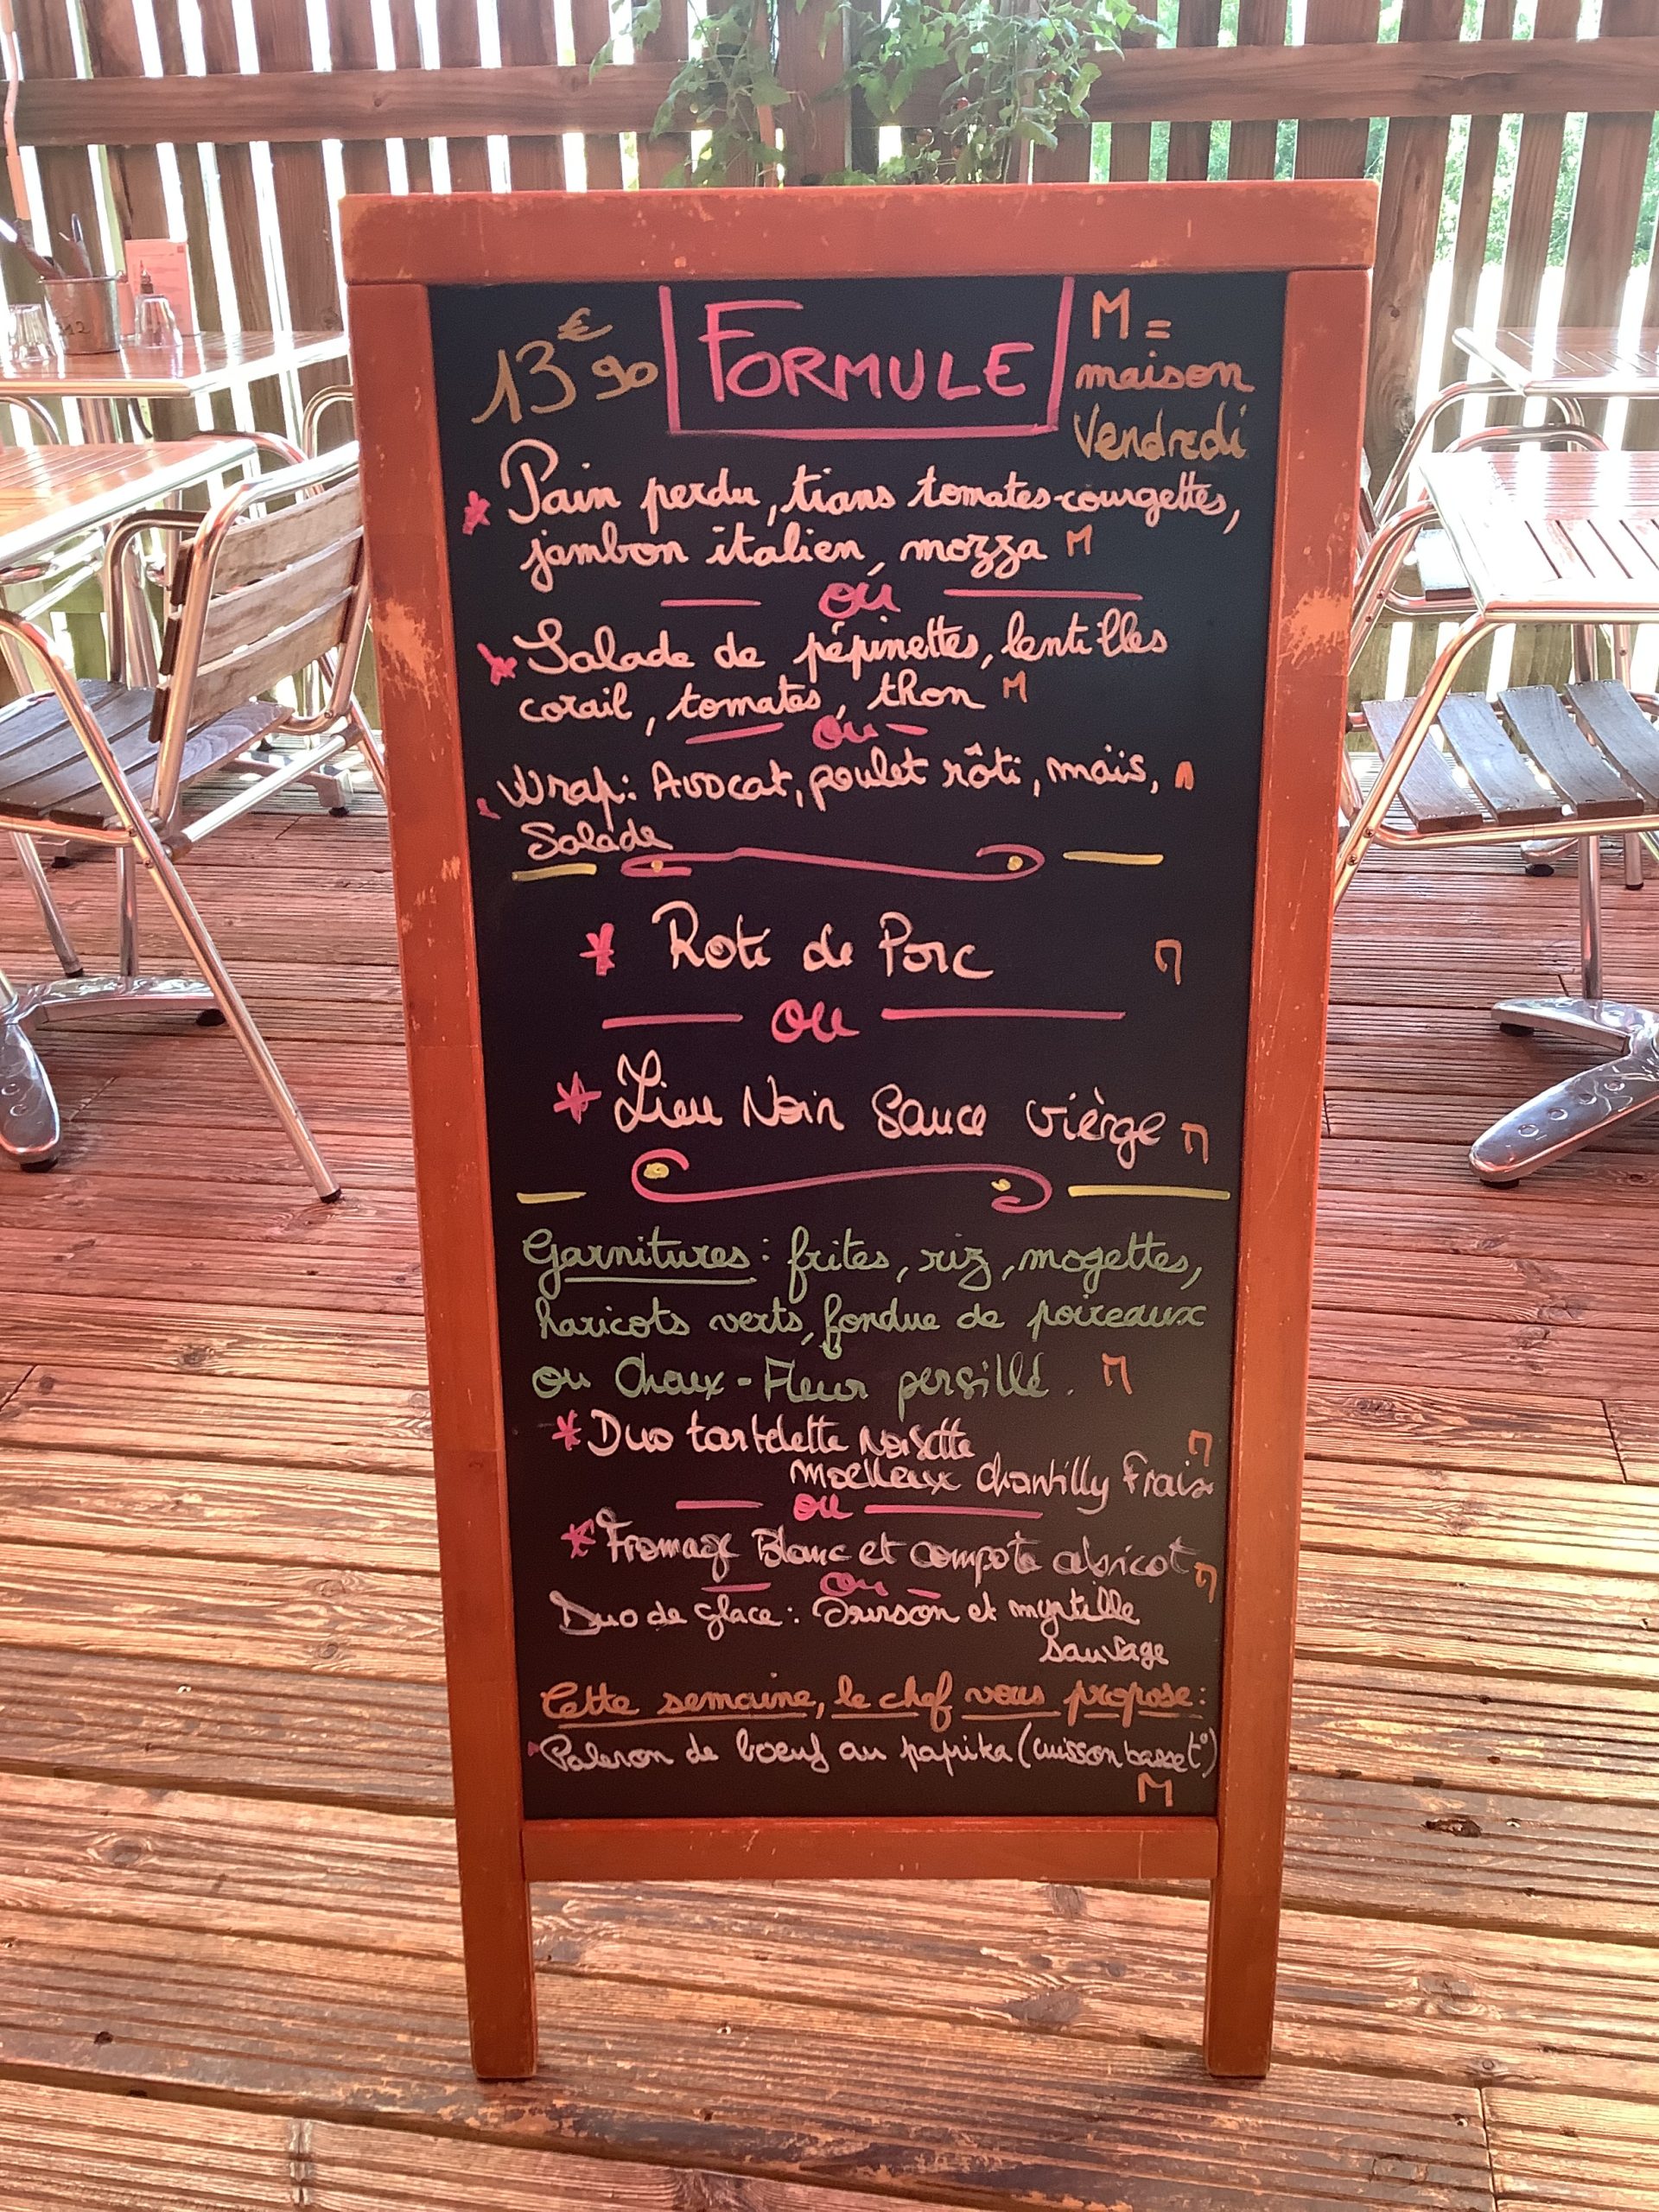 13€90 FORMULE M =
maison
Vendredi
* Pain perdu, tians tomates-courgettes,
jambon italien, mozza M
ou
* Salade de pépinettes, lentilles
corail, tomates, thon M
ou
Wrap: Avocat, poulet rôti, maïs, M
Salade
* Roti de Porc M
ou
* Lieu Noir Sauce vièrge M
Garnitures : frites, riz, mogettes,
haricots verts, fondue de poireaux
ou Choux-Fleur persillé. M
* Duo tartelette Noisette M
Moelleux Chantilly Frais
ou
* Fromage Blanc et compote abricot M
ou
Duo de glace : Ourson et myrtille
sauvage
Cette semaine, le chef vous propose :
Paleron de boeuf au paprika (cuisson basse t°)
M